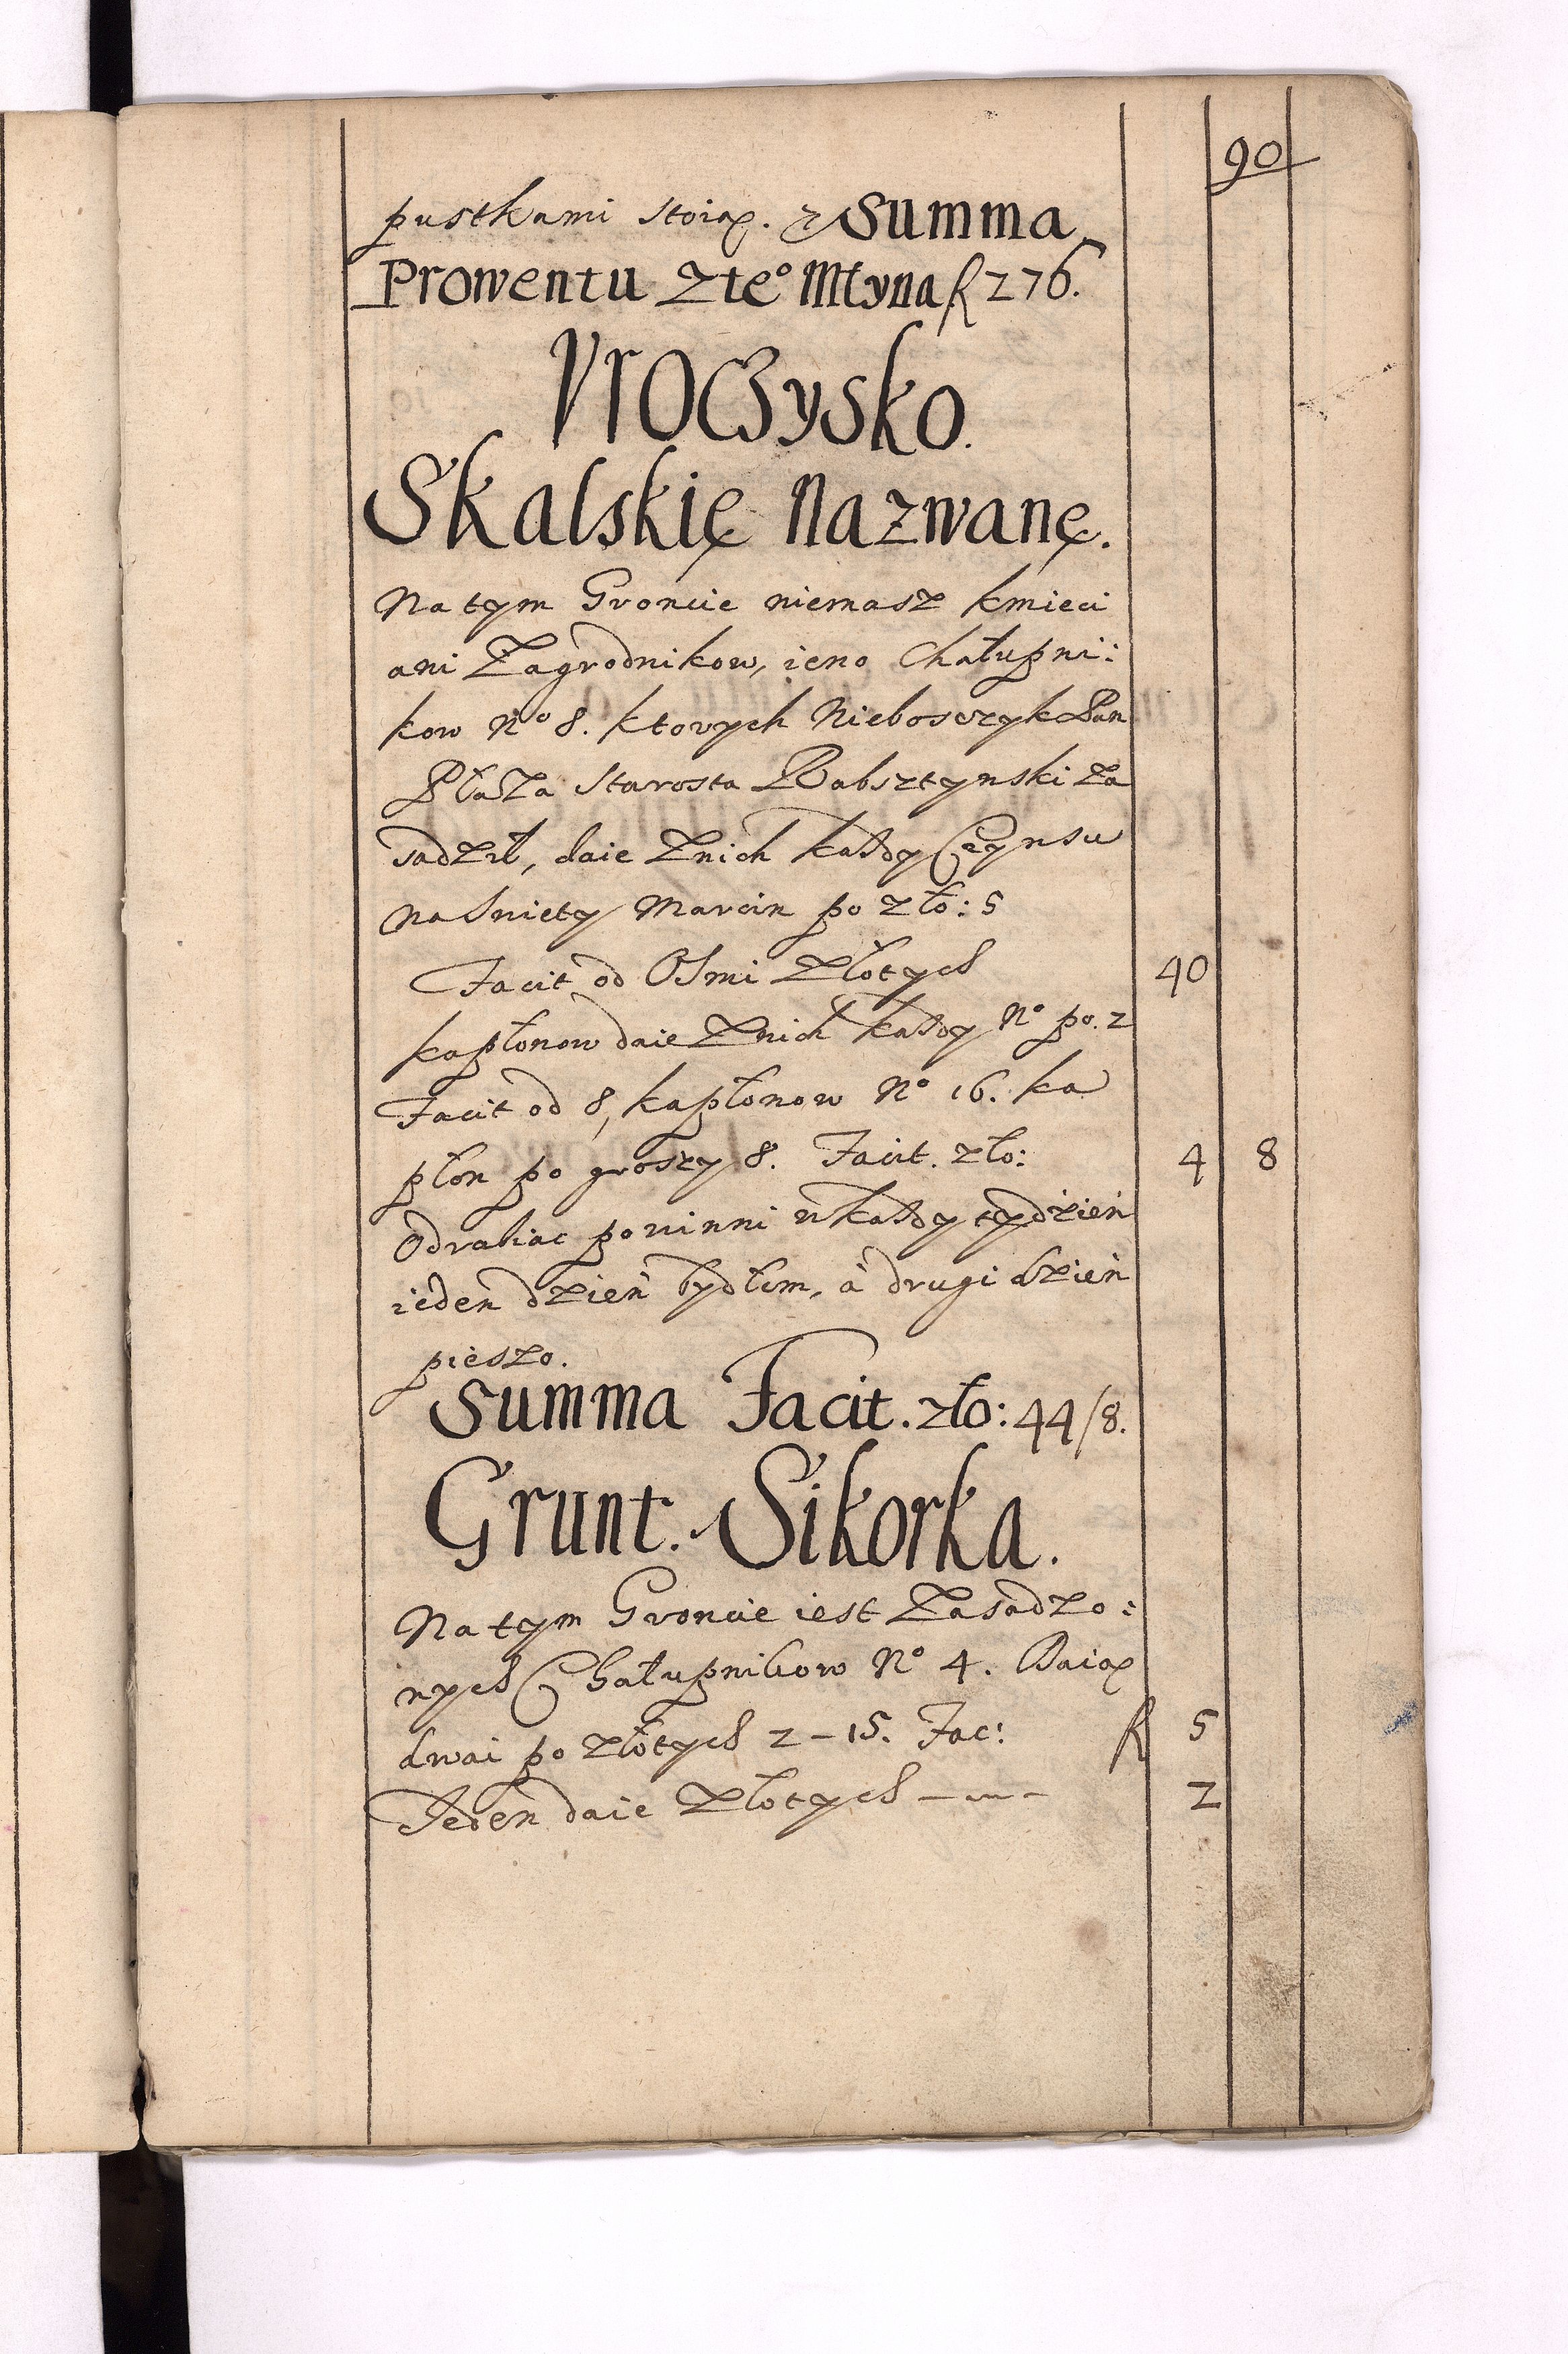 90
pustkami stoią. Summa
Prowentu Zteº Młyna fl 276.
Vroczysko.
Skalskię Nazwanę.
Na tym Groncie niemasz kmieci
ani Zagrodnikow, ieno Chałupni:
kow Nº 8. ktorych Nieboszczyk Pan
Płaza Starosta Rabsztynski Za
sadził, daie Znich każdy Czynsu
na Swięty Marcin po zło: 5
Facit od Osmi Złotych 40
kapłonow daie Znich każdy Nº po. 2
Facit od 8, kapłonow Nº 16. ka
płon po groszy 8. Facit. zło: 4 8
Odrabiac powinni w każdy tydzień
ieden dzień bydłem, à drugi dzień
pieszo.
Summa Facit. zło: 44/8.
Grunt. Sikorka.
Na tym Groncie iest Zasadzo:
nych Chałupnikow Nº 4. Daią
dwai po złotych 2-15. Fac: fl 5
Ieden daie Złotych 2